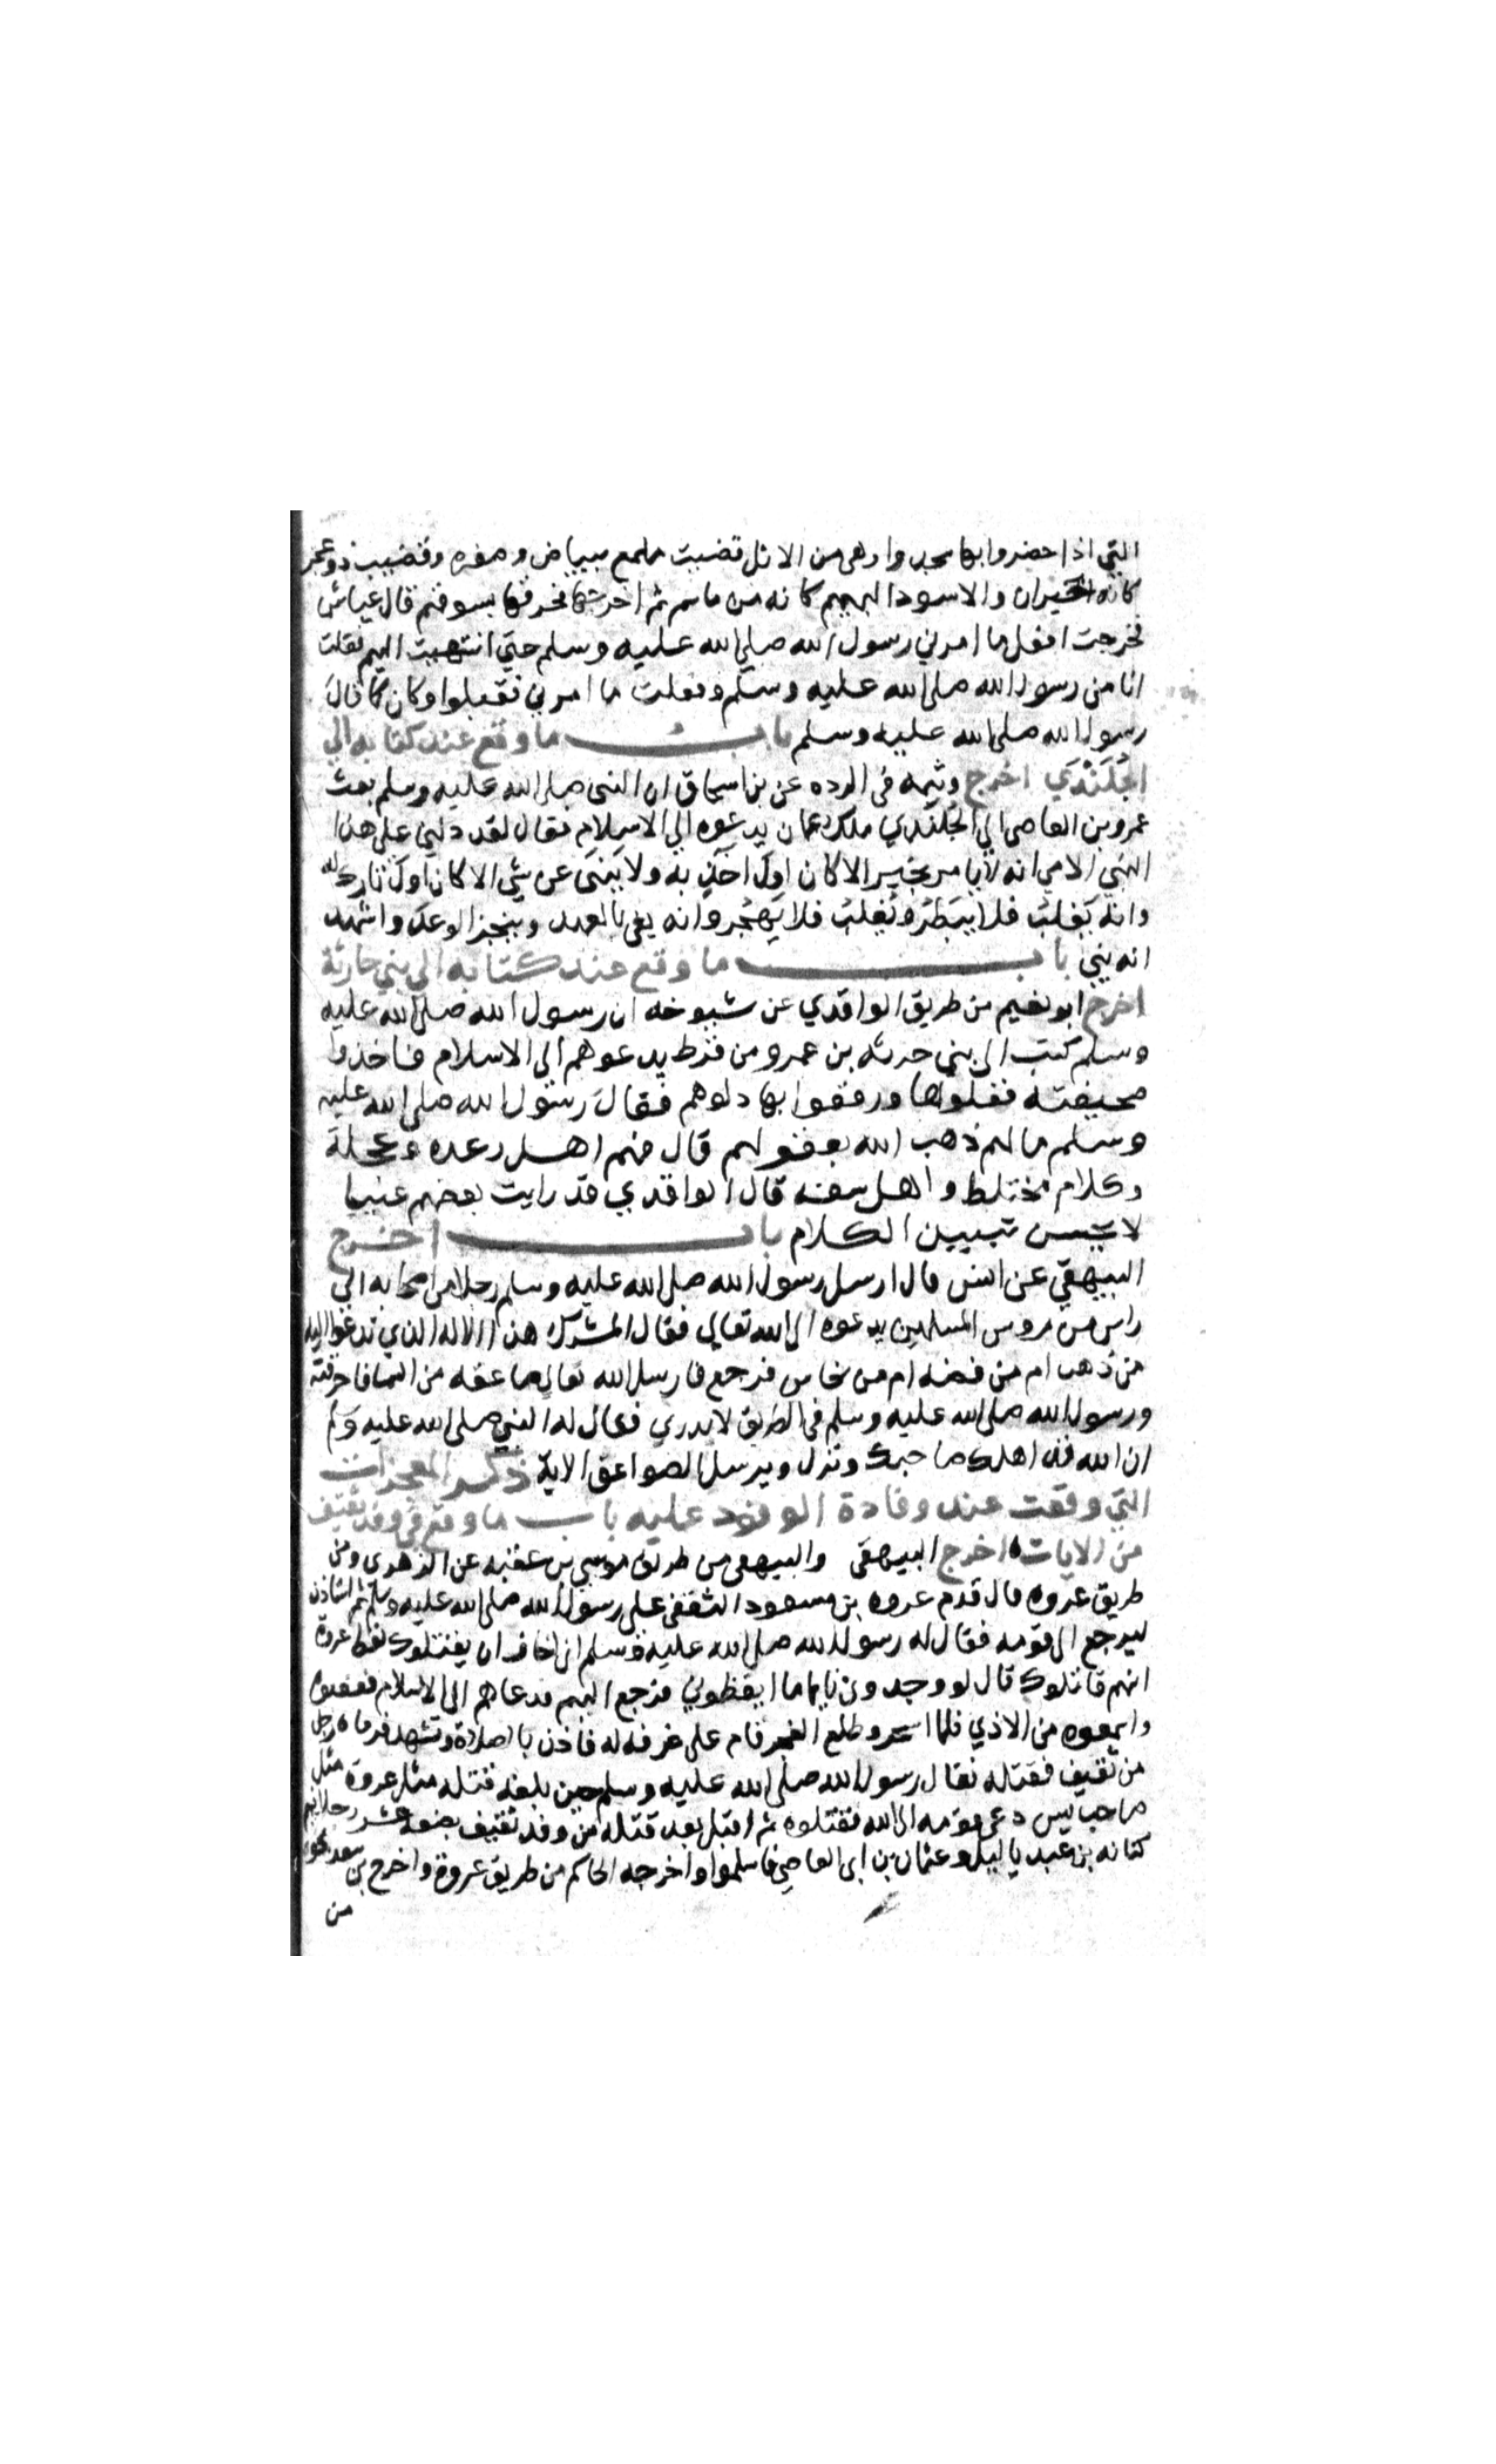 التي اذا حضروا بها سجدوا وهي من الاثل قضيب ملمع ببياض وصفره وقضيب ذو عجر
كانه الخيزران والاسود البهيم كانه من ساسم ثم اخرجها فحرقها بسوقهم قال عياش
فخرجت افعل ما امرني رسول الله صلى الله عليه وسلم حتى انتهيت اليهم فقلت
انا من رسول الله صلى الله عليه وسلم وفعلت ما امرني فقبلوا وكان كما قال
رسول الله صلى الله عليه وسلم باب ما وقع عند كتابه الي
الجُلَنْدَي اخرج وثيمه في الرده عن بن اسحاق ان النبي صلى الله عليه وسلم بعث
عمرو بن العاصي الي الجُلَنْدي ملك عمان يدعوه الي الاسلام فقال لقد دلني علي هذا
النبي الامي انه لا يامر بخير الا كان اول اخذ به ولا ينهي عن شي الا كان اول تارك له
وانه يغلب فلا يبطر ويُغلب فلا يهجر وانه يفي بالعهد وينجز الوعد واشهد
انه نبي باب ما وقع عند كتابه الي بني حارثة
اخرج ابو نعيم من طريق الواقدي عن شيوخه ان رسول الله صلى الله عليه
وسلم كتب الي بني حرثه بن عمرو من قرط يدعوهم الي الاسلام فاخذوا
صحيفته فغسلوها ورقعوا بها دلوهم فقال رسول الله صلى الله عليه
وسلم ما لهم ذهب الله بعقولهم قال فهم اهل رعده وعجلة
وكلام مختلط واهل سفه قال الواقدي قد رايت بعضهم عييا
لا يحسن تبيين الكلام باب اخرج
البيهقي عن انس قال ارسل رسول الله صلى الله عليه وسلم رجلا من اصحابه الي
راس من روس المسلمين يدعوه الي الله تعالي فقال المشرك هذا الاله الذي تدعوا اليه
من ذهب ام من فضه ام من نحاس فرجع فارسل الله تعالي صاعقه من السما فاحرقته
ورسول الله صلى الله عليه وسلم في الطريق لا يدري فقال له النبي صلى الله عليه وسلم
ان الله قد اهلك صاحبك ونزل ويرسل الصواعق الاية ذكر المعجزات
التي وقعت عند وفادة الوفود عليه باب ما وقع في وفد ثقيف
من الايات اخرج البيهقي والبيهقي من طريق موسي بن عقبه عن الزهري ومن
طريق عروه قال قدم عروه بن مسعود الثقفي علي رسول الله صلى الله عليه وسلم ثم استاذن
ليرجع الي قومه فقال له رسول الله صلى الله عليه وسلم اني اخاف ان يقتلوك فقال عروة
انهم قاتلوك قال لو وجدوني نايما ما ايقظوني فرجع اليهم فدعاهم الي الاسلام فعصوه
واسمعوه من الاذي فلما اسحر وطلع الفجر قام علي غرفه له فاذن بالصلاة وتشهد فرماه رجل
من ثقيف فقتله فقال رسول الله صلى الله عليه وسلم حين بلغه قتله مثل عروة مثل
صاحب يس دعي قومه الي الله فقتلوه ثم اقبل بعد قتله من وفد ثقيف بضعه عشر رجلا فيهم
كنانه بن عبد ياليل وعثمان بن ابي العاصي فاسلموا واخرجه الحاكم من طريق عروة واخرج بن سعد نحوه
من